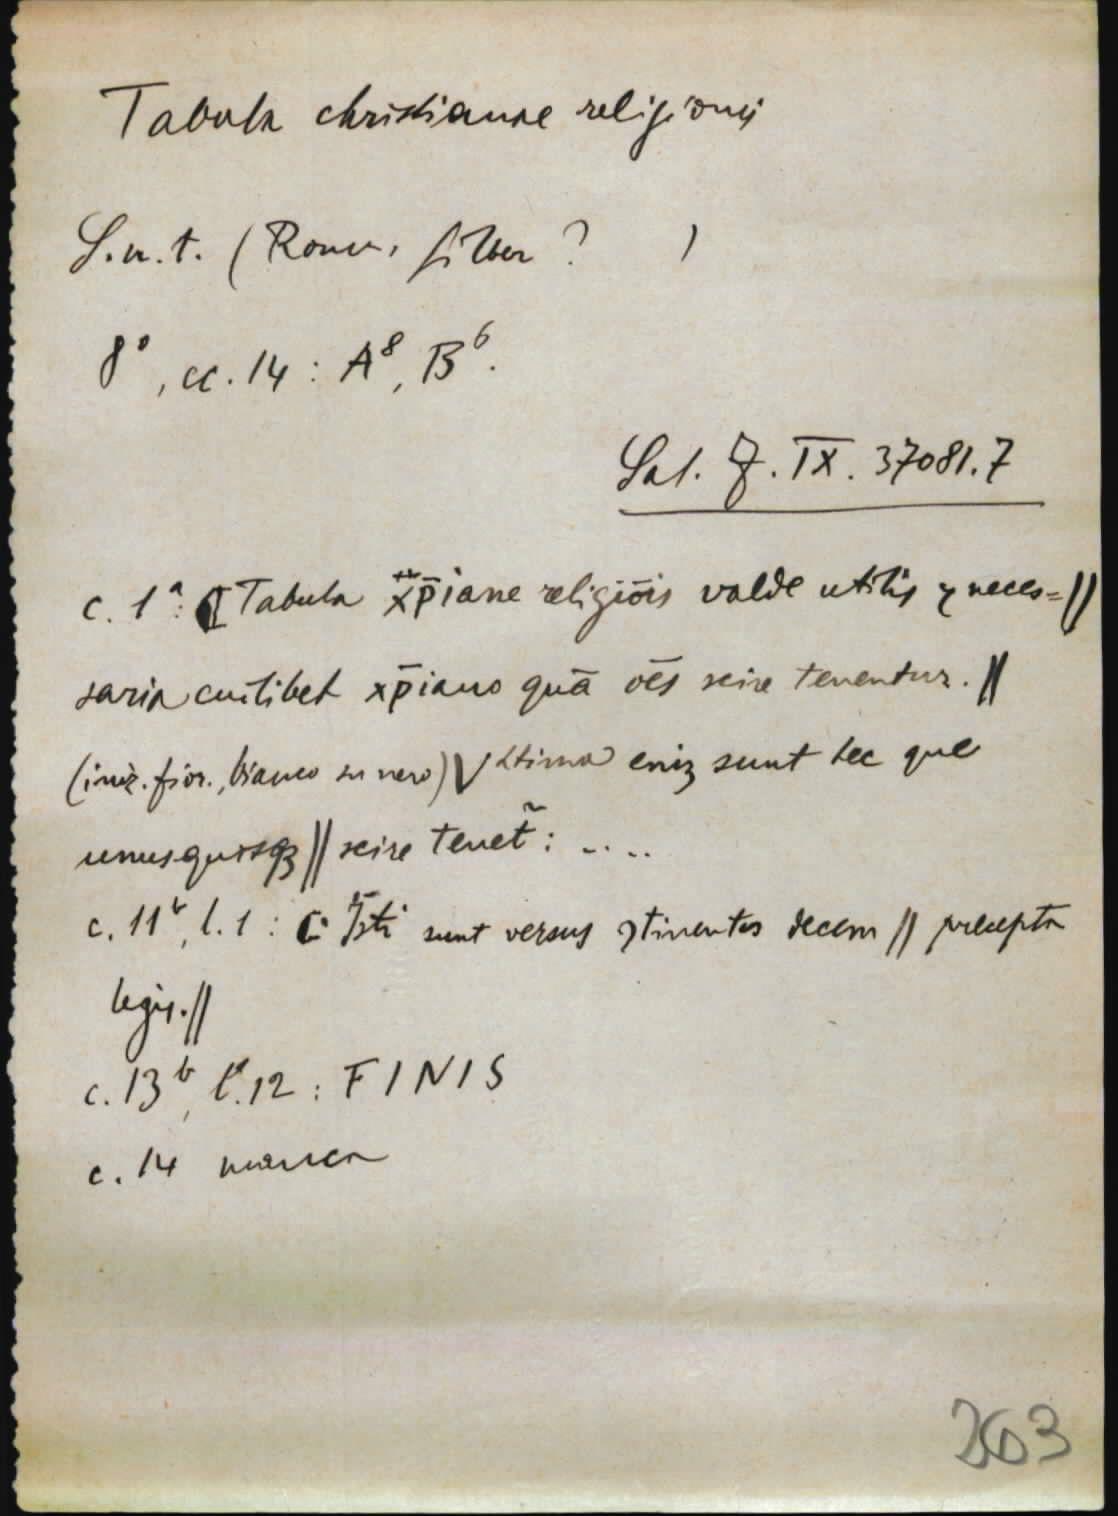 Tabula christianae religionis
S.n.t. (Roma, Silber ? )
8°, cc. 14 : A⁸, B⁶.
Sal. Z. IX. 37081.7
c. 1ᵃ: ¶ Tabula xp̄iane religiōis valde utilis ⁊ neces=//
saria cuilibet xp̄iano quā oēs scire tenentur. //
(iniz. fior., bianco su nero) Vltima eniz sunt hec que
unusquisqꝫ // scire tenet̃ : ....
c. 11ᵇ, l. 1 : ¶ Isti sunt versus ꝯtinentes decem // precepta
legis. //
c. 13ᵇ, l. 12 : FINIS
c. 14 manca
263